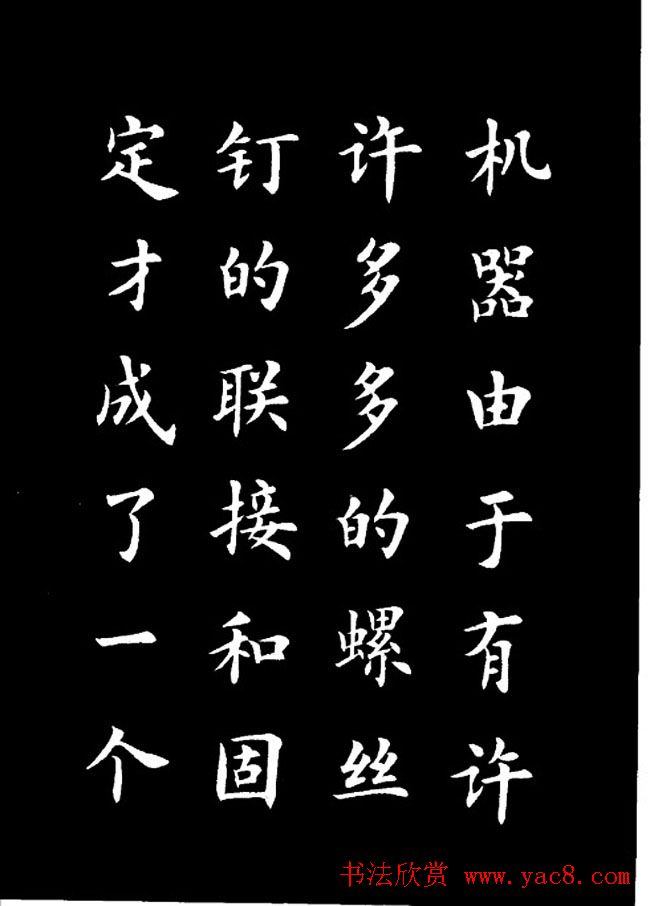 机器由于有许
许多多的螺丝
钉的联接和固
定才成了一个
书法欣赏 www.yac8.com